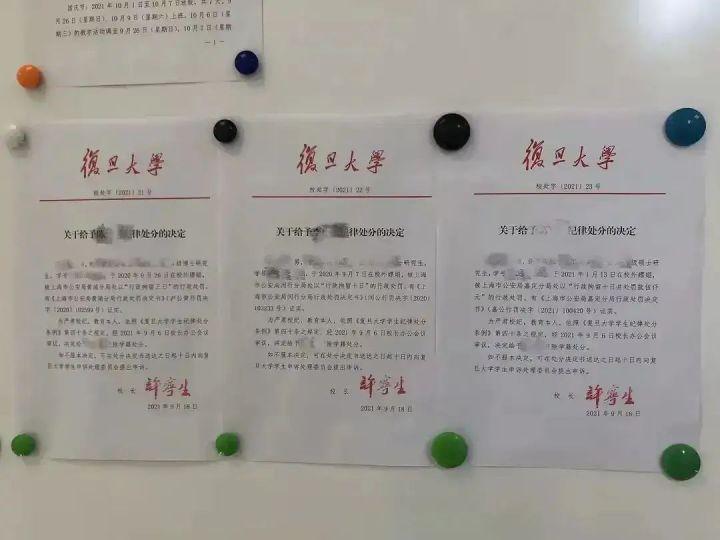 国庆节：2021 年 10 月 1 日至 10 月 7 日放假，共 7 天。9
月 26 日（星期日）、10 月 9 日（星期六）上班。10 月 6 日（星
期三）的教学活动调至 9 月 26 日（星期日），10 月 7 日（星期
— 1 —
復旦大學
校处字〔2021〕21 号
关于给予 律处分的决定
级博士研究
生，学号 于 2020 年 9 月 26 日在校外嫖娼，
被上海市公安局黄浦分局处以“行政拘留三日”的行政处罚，
有《上海市公安局黄浦分局行政处罚决定书》（沪公黄行罚决
字〔2020〕102599 号）证实。
为严肃校纪，教育本人，依照《复旦大学学生纪律处分
条例》第四十条之规定，经 2021 年 9 月 6 日校长办公会议
审议，决定给予 除学籍处分。
如不服本决定，可在处分决定书送达之日起十日内向复
旦大学学生申诉处理委员会提出申诉。
校 长 許寧生
2021 年 9 月 18 日
復旦大學
校处字〔2021〕22 号
关于给予李 律处分的决定
男， 研究生，
学号 于 2020 年 9 月 7 日在校外嫖娼，被上海
市公安局闵行分局处以“行政拘留十日”的行政处罚，有《上
海市公安局闵行分局行政处罚决定书》（闵公行罚决字〔2020〕
号）证实。
为严肃校纪，教育本人，依照《复旦大学学生纪律处分
条例》第四十条之规定，经 2021 年 9 月 6 日校长办公会议
审议，决定给予 除学籍处分。
如不服本决定，可在处分决定书送达之日起十日内向复
旦大学学生申诉处理委员会提出申诉。
校 长 許寧生
2021 年 9 月 18 日
復旦大學
校处字〔2021〕23 号
关于给予 纪律处分的决定
级硕士研究
生，学号 于 2021 年 1 月 13 日在校外嫖娼，
被上海市公安局嘉定分局处以“行政拘留十日并处罚款伍仟
元”的行政处罚，有《上海市公安局嘉定分局行政处罚决定
书》（嘉公行罚字〔2021〕100420 号）证实。
为严肃校纪，教育本人，依照《复旦大学学生纪律处分
条例》第四十条之规定，经 2021 年 9 月 6 日校长办公会议
审议，决定给予 除学籍处分。
如不服本决定，可在处分决定书送达之日起十日内向
复旦大学学生申诉处理委员会提出申诉。
校 长 許寧生
2021 年 9 月 18 日